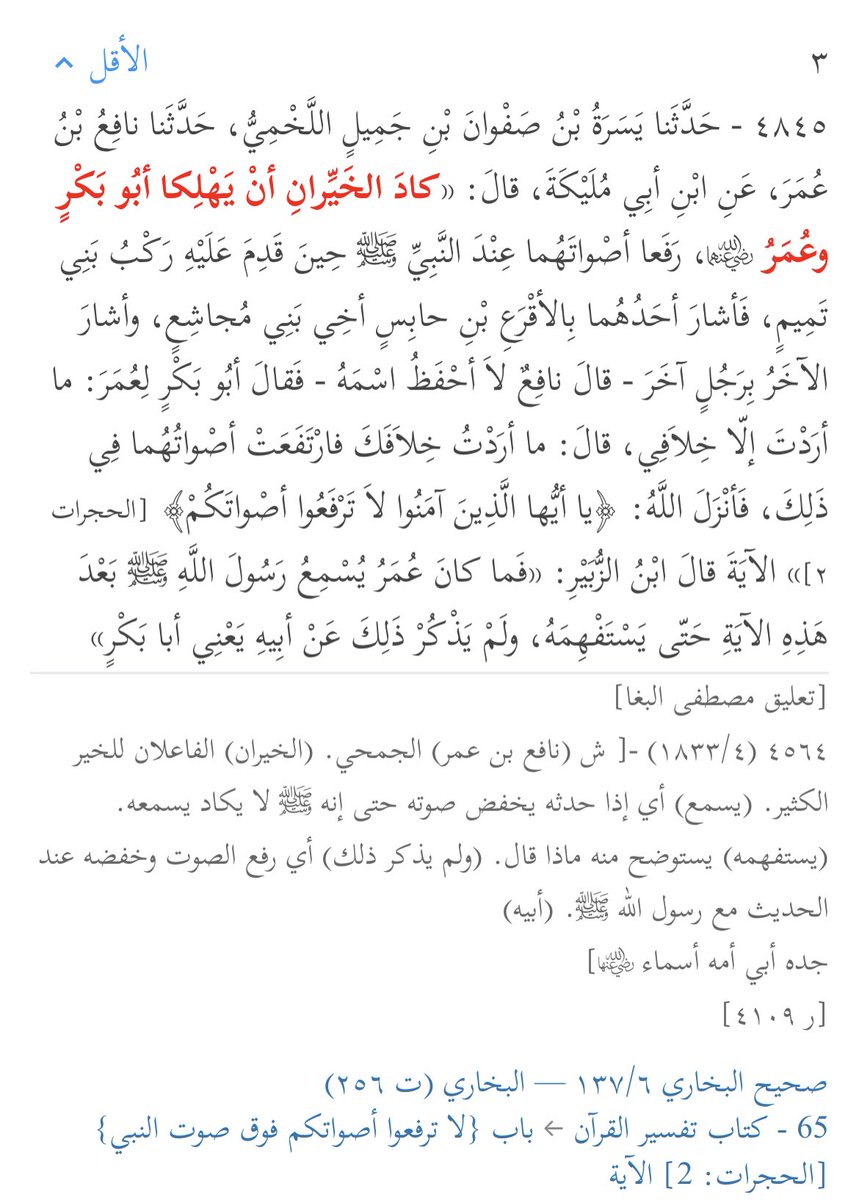 ٣
الأقل
٤٨٤٥ - حَدَّثَنا يَسَرَةُ بْنُ صَفْوانَ بْنِ جَمِيلٍ اللَّخْمِيُّ، حَدَّثَنا نافِعُ بْنُ
عُمَرَ، عَنِ ابْنِ أبِي مُلَيْكَةَ، قالَ: «كادَ الخَيِّرانِ أنْ يَهْلِكا أبُو بَكْرٍ
وعُمَرُ رضي الله عنهما، رَفَعا أصْواتَهُما عِنْدَ النَّبِيِّ ﷺ حِينَ قَدِمَ عَلَيْهِ رَكْبُ بَنِي
تَمِيمٍ، فَأشارَ أحَدُهُما بِالأقْرَعِ بْنِ حابِسٍ أخِي بَنِي مُجاشِعٍ، وأشارَ
الآخَرُ بِرَجُلٍ آخَرَ - قالَ نافِعٌ لاَ أحْفَظُ اسْمَهُ - فَقالَ أبُو بَكْرٍ لِعُمَرَ: ما
أرَدْتَ إلّا خِلاَفِي، قالَ: ما أرَدْتُ خِلاَفَكَ فارْتَفَعَتْ أصْواتُهُما فِي
ذَلِكَ، فَأنْزَلَ اللَّهُ: ﴿يا أيُّها الَّذِينَ آمَنُوا لاَ تَرْفَعُوا أصْواتَكُمْ﴾ [الحجرات
٢]» الآيَةَ قالَ ابْنُ الزُّبَيْرِ: «فَما كانَ عُمَرُ يُسْمِعُ رَسُولَ اللَّهِ ﷺ بَعْدَ
هَذِهِ الآيَةِ حَتّى يَسْتَفْهِمَهُ، ولَمْ يَذْكُرْ ذَلِكَ عَنْ أبِيهِ يَعْنِي أبا بَكْرٍ»
[تعليق مصطفى البغا]
٤٥٦٤ (١٨٣٣/٤) -[ ش (نافع بن عمر) الجمحي. (الخيران) الفاعلان للخير
الكثير. (يسمع) أي إذا حدثه يخفض صوته حتى إنه ﷺ لا يكاد يسمعه.
(يستفهمه) يستوضح منه ماذا قال. (ولم يذكر ذلك) أي رفع الصوت وخفضه عند
الحديث مع رسول الله ﷺ. (أبيه)
جده أبي أمه أسماء رضي الله عنها]
[ر ٤١٠٩]
صحيح البخاري ١٣٧/٦ — البخاري (ت ٢٥٦)
65 - كتاب تفسير القرآن ← باب {لا ترفعوا أصواتكم فوق صوت النبي}
[الحجرات: 2] الآية